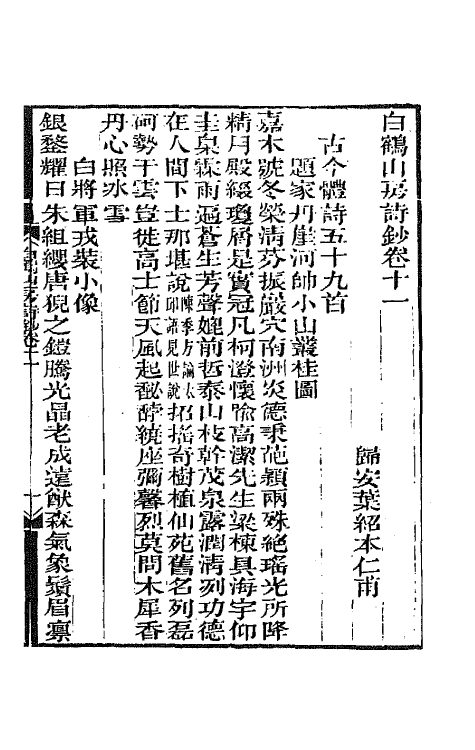 白鶴山房詩鈔卷十一
歸安葉紹本仁甫
古今體詩五十九首
題家丹崖河帥小山叢桂圖
嘉木號冬榮清芬振巖穴南洲炎德秉葩穎兩殊絕瑤光所降
精月殿綴瓊屑是實冠凡柯澄懷隃高潔先生梁棟具海宇仰
圭臬霖雨遍蒼生芳聲媲前哲泰山枝幹茂泉露潤清冽功德
在人間下士那堪說陳季方論太邱語見世說招搖奇樹植仙苑舊名列磊
砢勢干雲豈徙高士節天風起馝馞繞座彌馨烈莫問木犀香
丹心照冰雪
白將軍戎裝小像
銀鍪耀日朱組纓唐猊之鎧騰光晶老成遠猷森氣象鬚眉凛